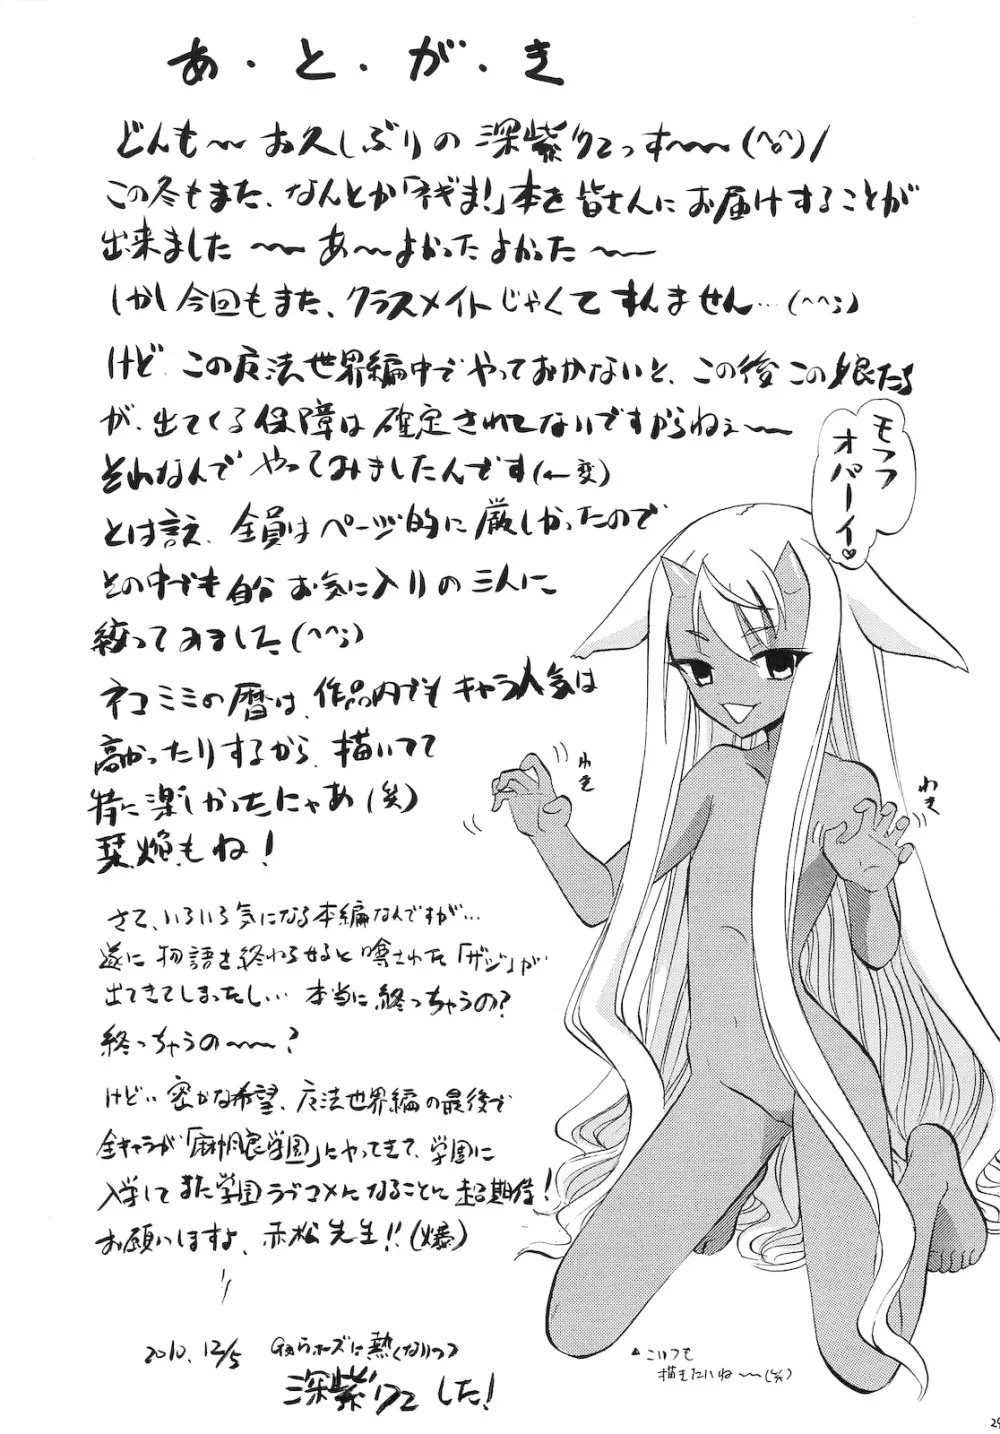 あ・と・が・き
どんも〜 お久しぶりの 深紫クこっす〜〜(^o^)/
この冬もまた、なんとか「ネギま!」本を皆さんにお届けすることが
出来ました 〜〜 あ〜よかったよかった 〜〜
しかし今回もまた、クラスメイトじゃくてすんません…(^^;)
けど この魔法世界編中でやっておかないと、この後この娘たち
が、出てくる保障は確定されてないですからねぇ〜〜
それなんで やってみましたんです(←変)
とは言え、全員はページ的に厳しかったので
その中でも自分お気に入りの三人に
絞ってみました(^^;)
ネコミミの暦は、作品内でもキャラ人気は
高かったりするから、描いてて
特に楽しかったにゃあ(笑)
栞、焔もね!
さて、いろいろ気になる本編なんですが…
遂に物語を終わらせると噂された「ザジ」が…
出てきてしまったし… 本当に終っちゃうの?
終っちゃうの〜〜?
けど… 密かな希望、魔法世界編の最後で
全キャラが「麻帆良学園」にやってきて、学園に
入学してまた学園ラブコメになることに超期待!
お願いしますよ、赤松先生!!(爆)
2010.12/5
熱くなりつつ
深紫クこ した!
モフフ
オパーイ♡
わき
わき
▲こいつも
描きたいね〜(笑)